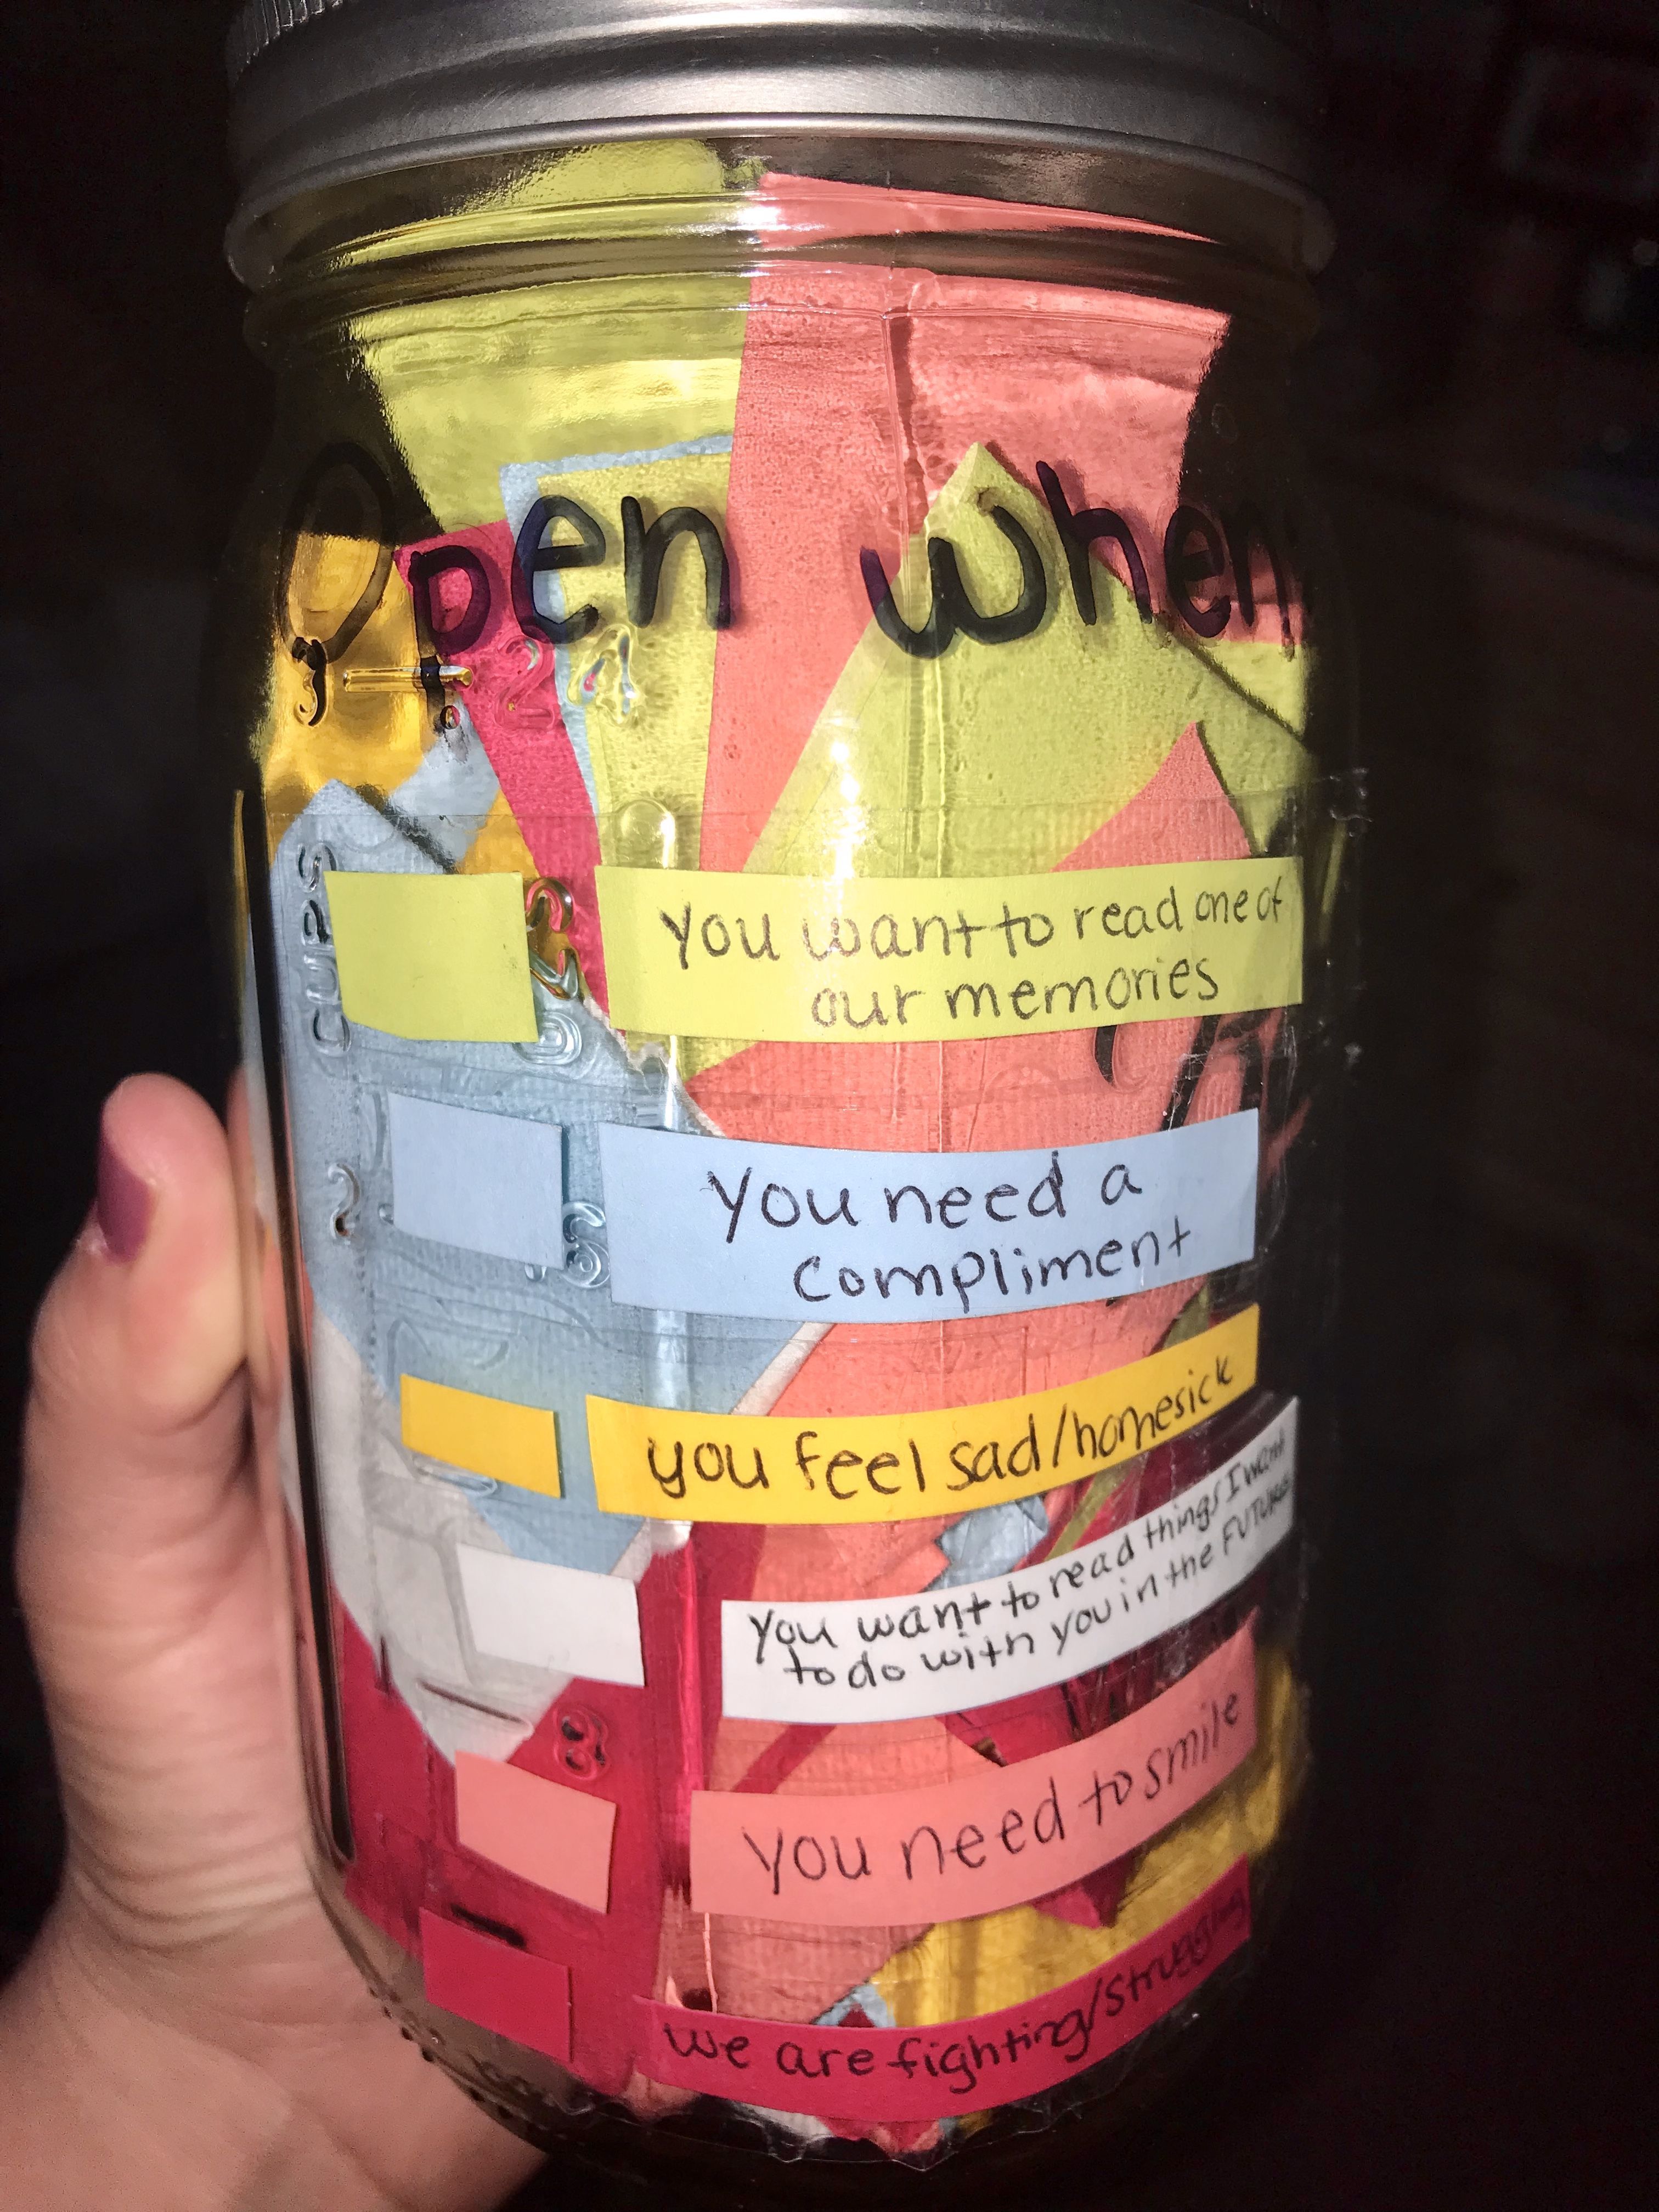 Open when:
CUPS
You want to read one of
our memories
You need a
compliment
you feel sad/homesick
You want to read things I want
to do with you in the FUTURE
You need to smile
we are fighting/struggling